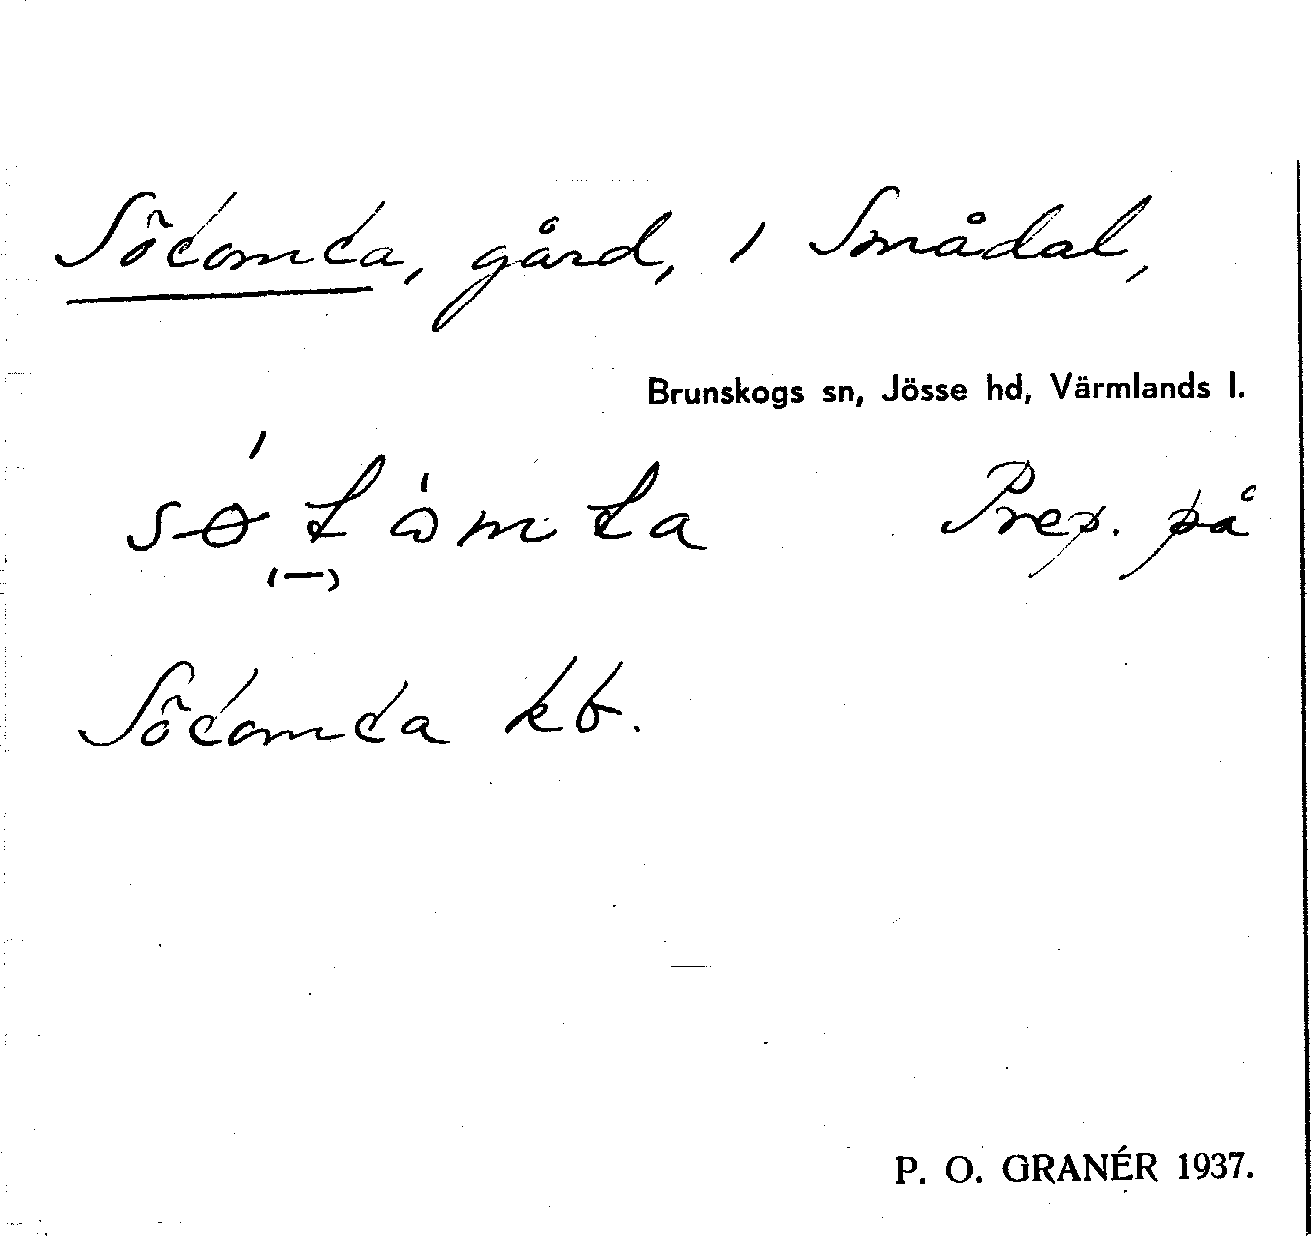 Sötomta, gård, 1 Smådal,
Brunskogs sn, Jösse hd, Värmlands l.
Prep. på
Sötomta kb.
P. O. GRANÉR 1937.